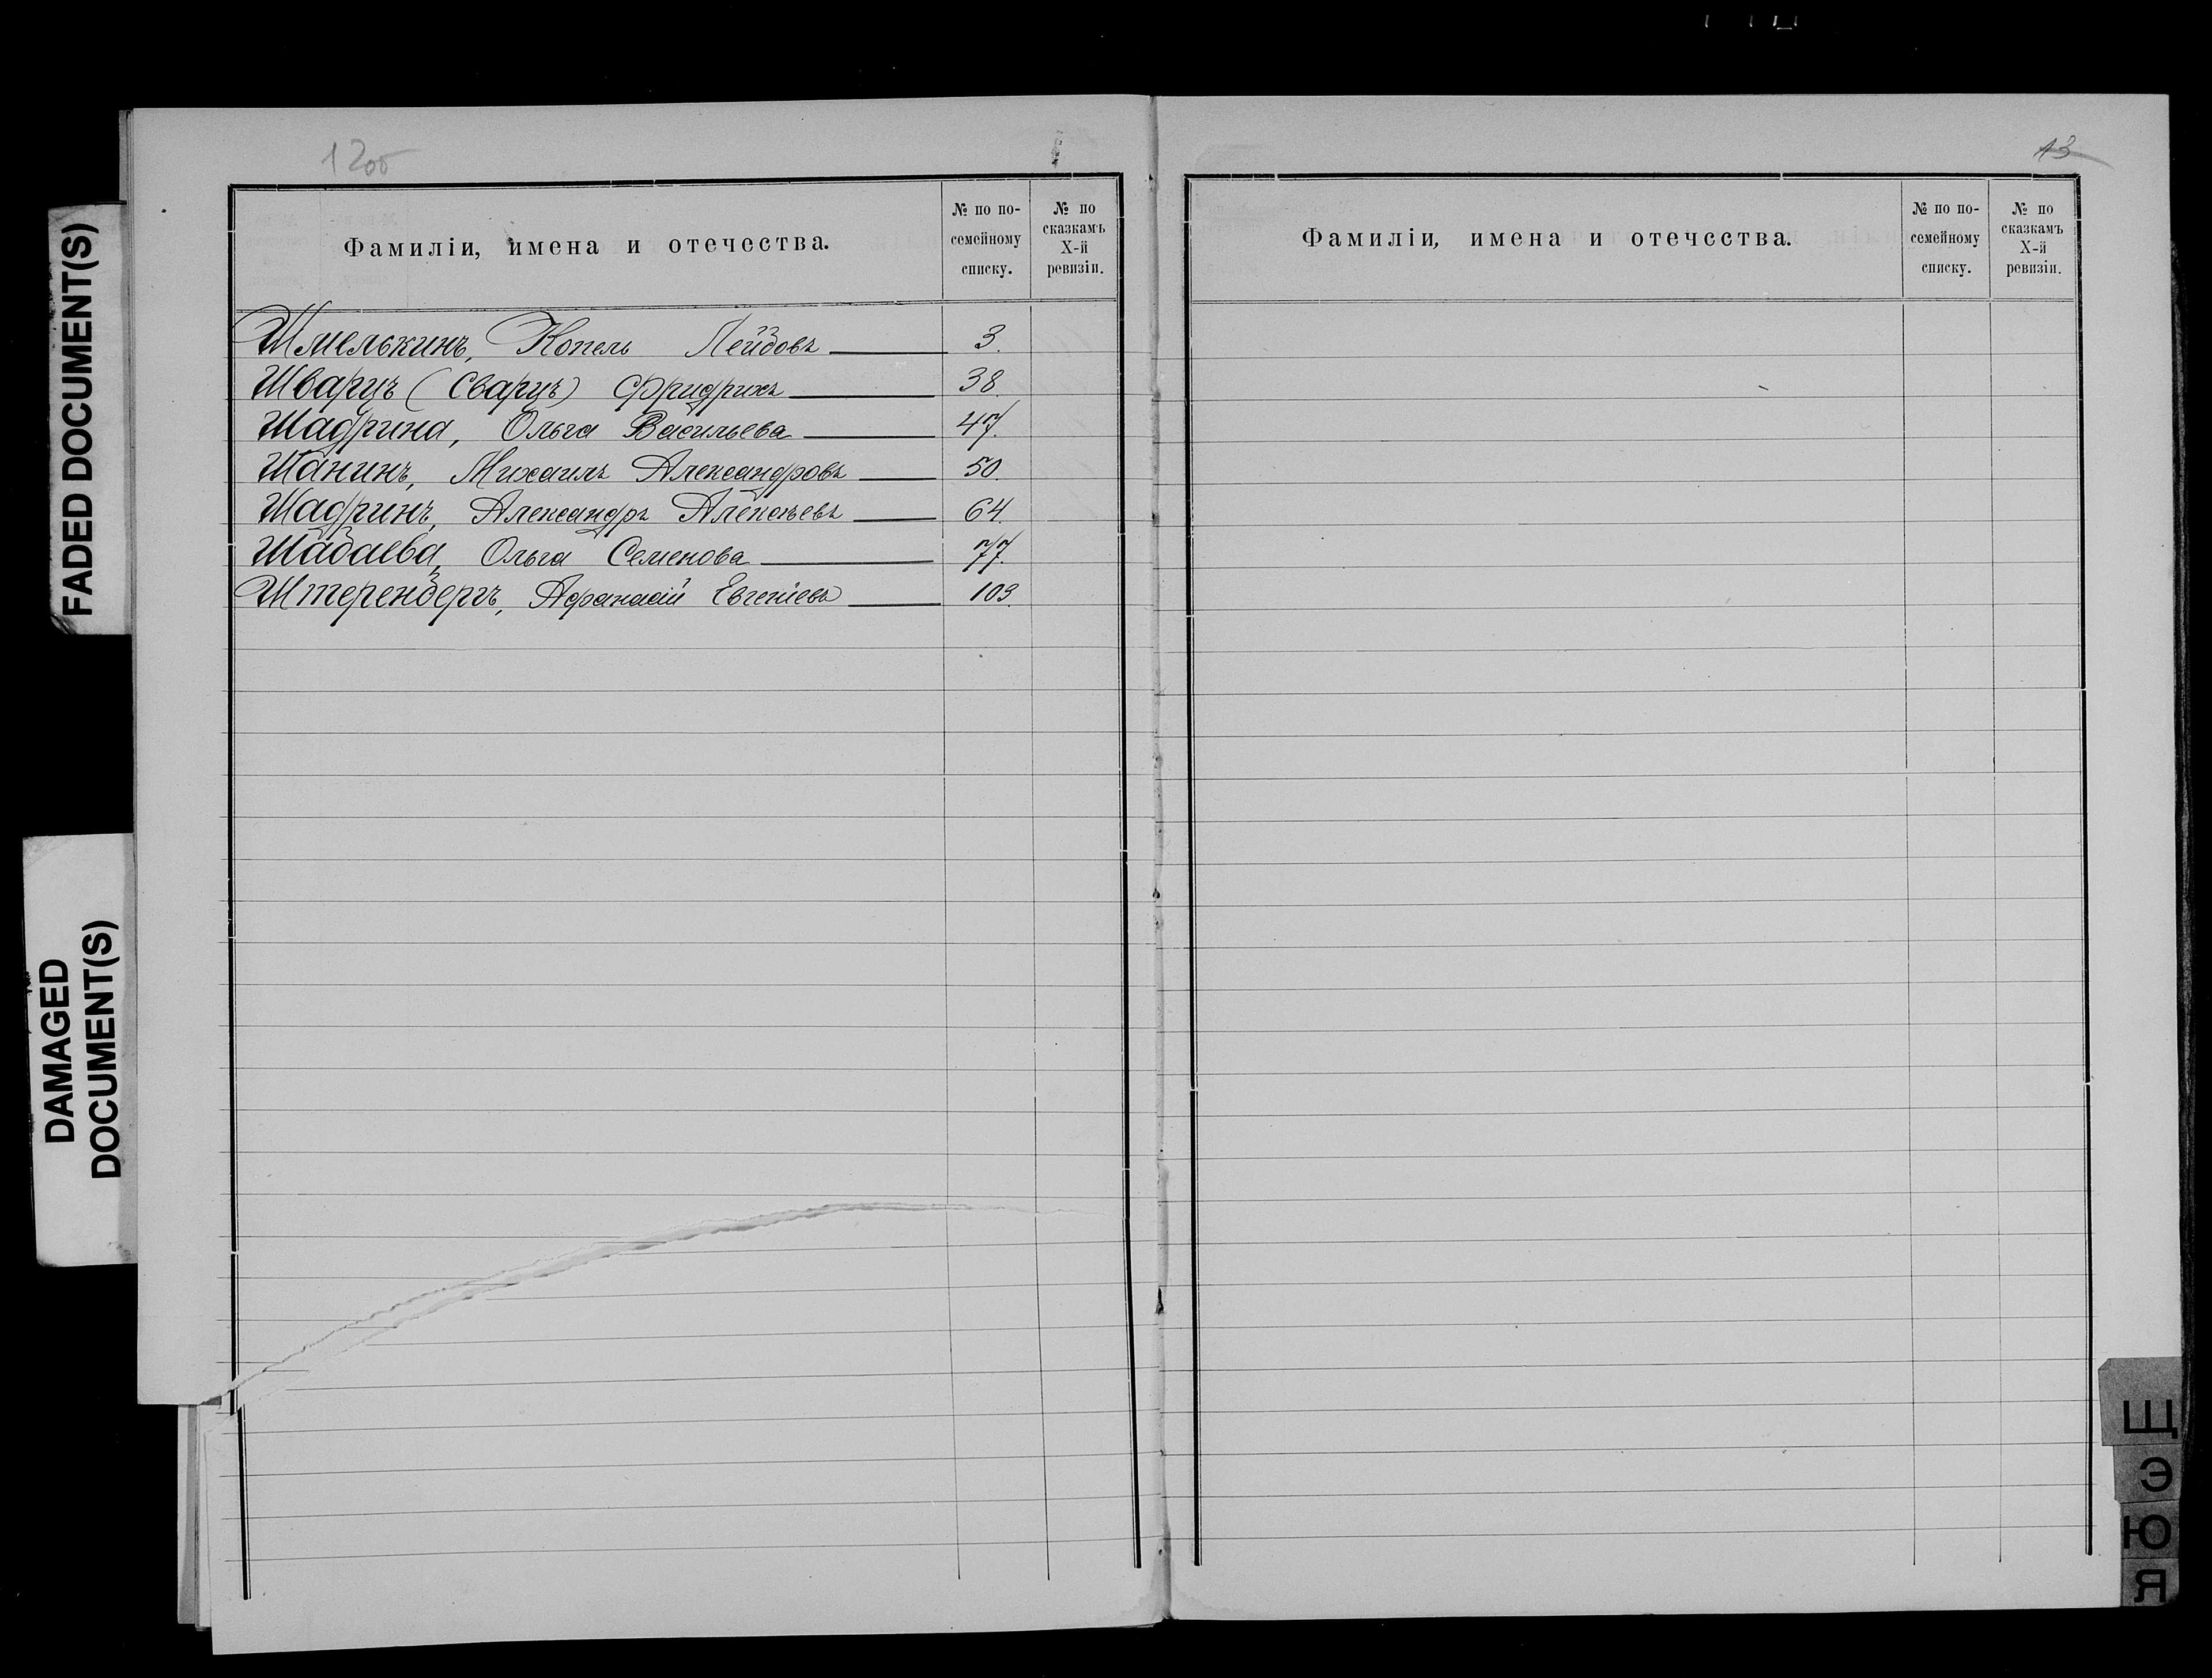 FADED DOCUMENT(S)
DAMAGED
DOCUMENT(S)
12об
Фамиліи, имена и отечества.
№ по по-
семейному
списку.
№ по
сказкамъ
X-й
ревизіи.
Шмелькинъ, Копель Лейбовъ 3.
Шварцъ (Сварцъ) Фридрихъ 38.
Шадрина, Ольга Васильева 47.
Шанинъ, Михаилъ Александровъ 50.
Шадринъ, Александръ Алексѣевъ 64.
Шабаева, Ольга Семенова 77.
Штеренбергъ, Афанасій Евгеніевъ 103.
13
Фамиліи, имена и отечества.
№ по по-
семейному
списку.
№ по
сказкамъ
X-й
ревизіи.
Щ
Э
Ю
Я